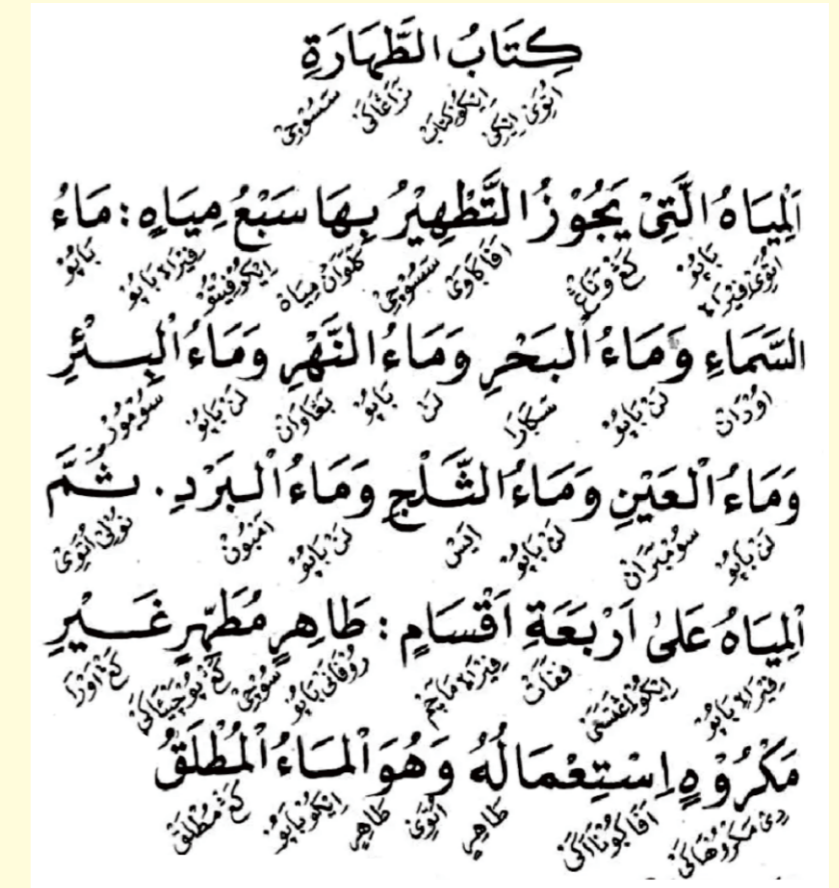 كِتَابُ الطَّهَارَةِ
اُتَوِيْ اِيْكِيْ اِيْكُوْ كِتَابْ نَرَاڠَاكَيْ سَسُوْچِيْ
اَلْمِيَاهُ الَّتِيْ يَجُوْزُ التَّطْهِيْرُ بِهَا سَبْعُ مِيَاهٍ : مَاءُ
اُتَوِيْ فِيْرَاڠ٢ بَاپُوْ كَڠْ وَنَاڠْ اَفَا سَسُوْچِيْ كَلَوَانْ مِيَاهْ اِيْكُوْ فِيْتُوْ فِيْرَاڠ٢ بَاپُوْ بَاپُوْ
السَّمَاءِ وَمَاءُ الْبَحْرِ وَمَاءُ النَّهْرِ وَمَاءُ الْبِـئْرِ
اُوْدَانْ لَنْ بَاپُوْ سَڬَارَا لَنْ بَاپُوْ بَڠَاوَانْ لَنْ بَاپُوْ سُوْمُوْرْ
وَمَاءُ الْعَيْنِ وَمَاءُ الثَّلْجِ وَمَاءُ الْبَرَدِ. ثُـمَّ
لَنْ بَاپُوْ سُوْمْبَرَانْ لَنْ بَاپُوْ اَيْسْ لَنْ بَاپُوْ اَمْبُوْنْ نُوْلِيْ اُتَوِيْ
اَلْمِيَاهُ عَلَىٰ اَرْبَعَةِ اَقْسَامٍ : طَاهِرٍ مُطَهِّرٍ غَـيْرِ
فِيْرَاڠ٢ بَاپُوْ اِيْكُوْ اِڠَتَسَيْ فَفَاتْ فِيْرَاڠ٢ مَاچَمْ رُوْفَانَيْ بَاپُوْ سُوْچِيْ كَڠْ پُوْچَيْئَاكَيْ كَڠْ اَوْرَا
مَكْرُوْهٍ اِسْتِعْمَالُهُ وَهُوَ الْمَاءُ الْمُطْلَقُ
دِيْ مَكْرُوْهَاكَيْ اَفَا ڬُوْنَاآكَيْ طَاهِرٍ اُتَوِيْ طَاهِرٍ اِيْكُوْ بَاپُوْ كَڠْ مُطْلَقْ